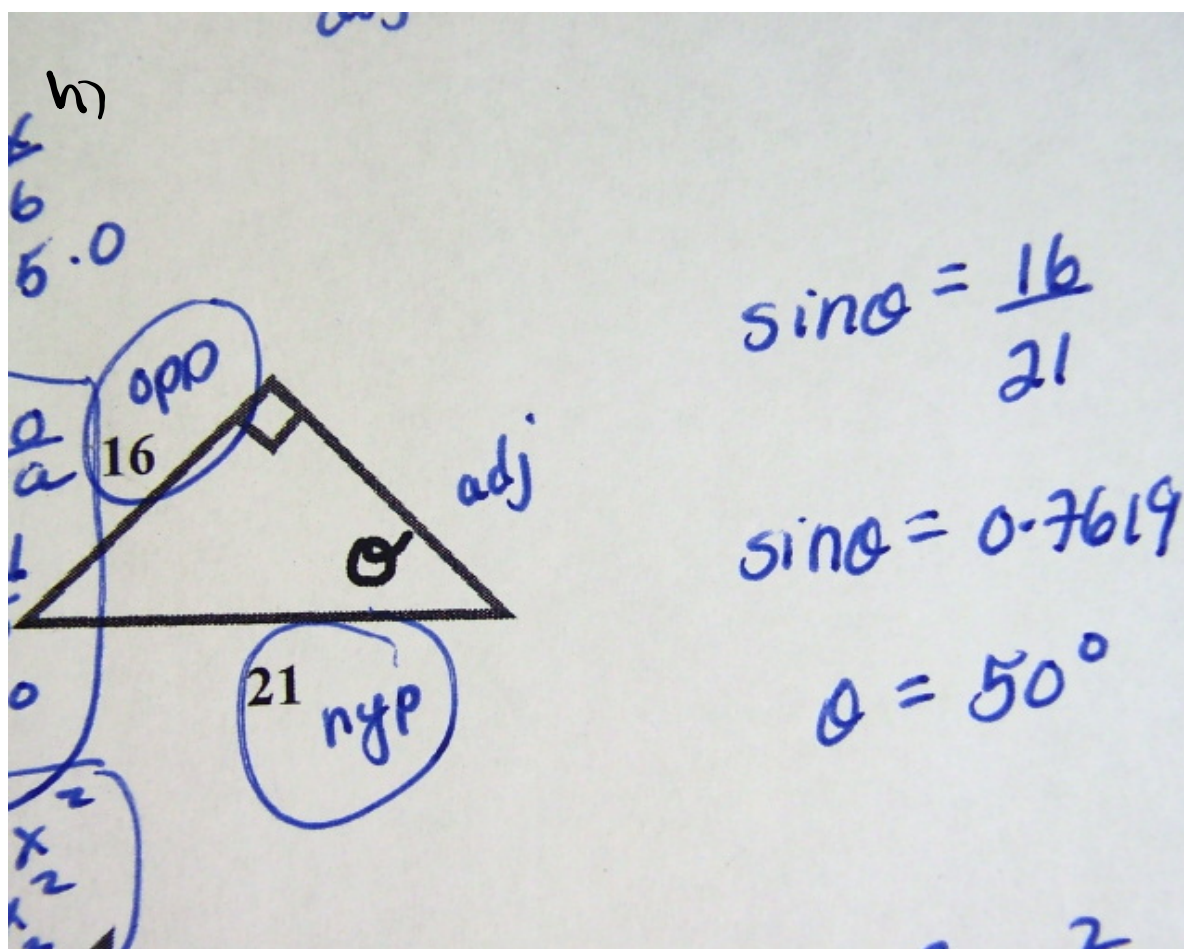 h)
6
5.0
opp
16
o/a
adj
θ
21 hyp
sinθ = 16/21
sinθ = 0.7619
θ = 50°
x²
2